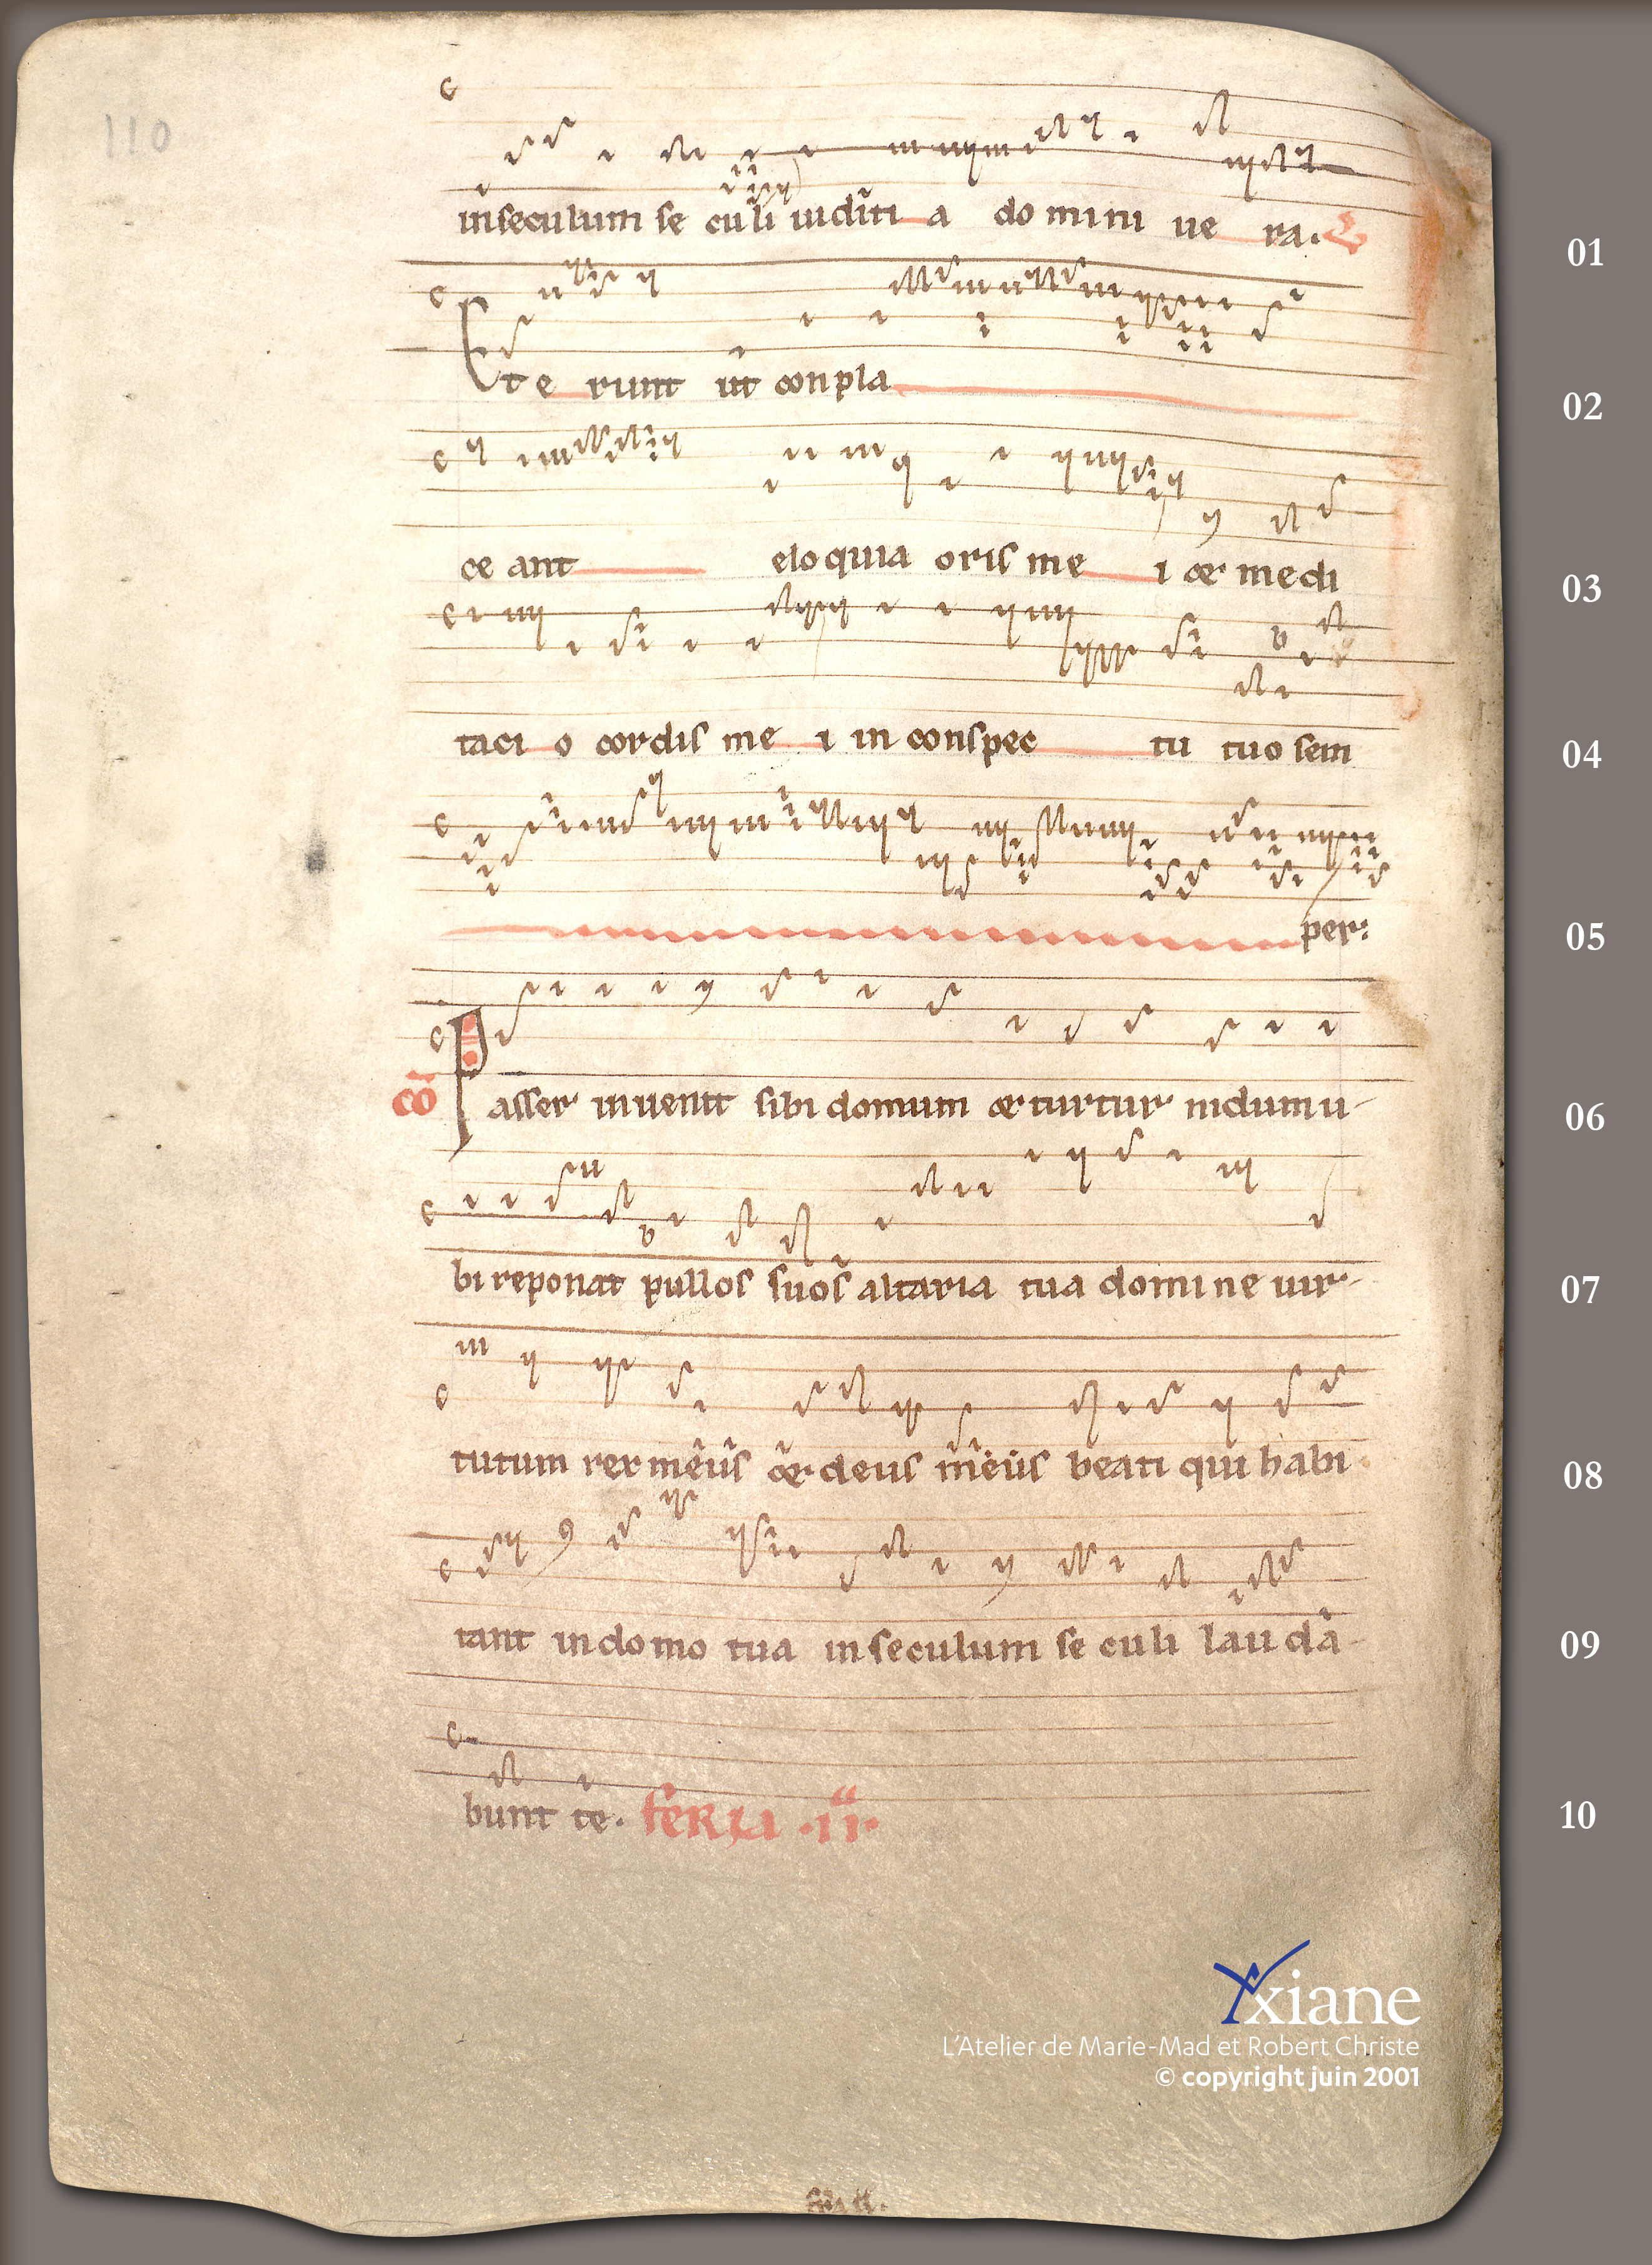 110
in seculum se culi iuditi a do mini ue ra.
01
Et e runt ut conpla
02
ce ant eloquia oris me i & medi
03
taci o cordis me i in conspec tu tuo sem
04
per:
05
cō Passer inuenit sibi domum & turtur nidum u-
06
bi reponat pullos suos altaria tua domi ne uir-
07
tutum rex meus & deus meus beati qui habi
08
tant in domo tua in seculum se culi lau da-
09
bunt te. feria .ii.
10
Axiane
L'Atelier de Marie-Mad et Robert Christe
© copyright juin 2001